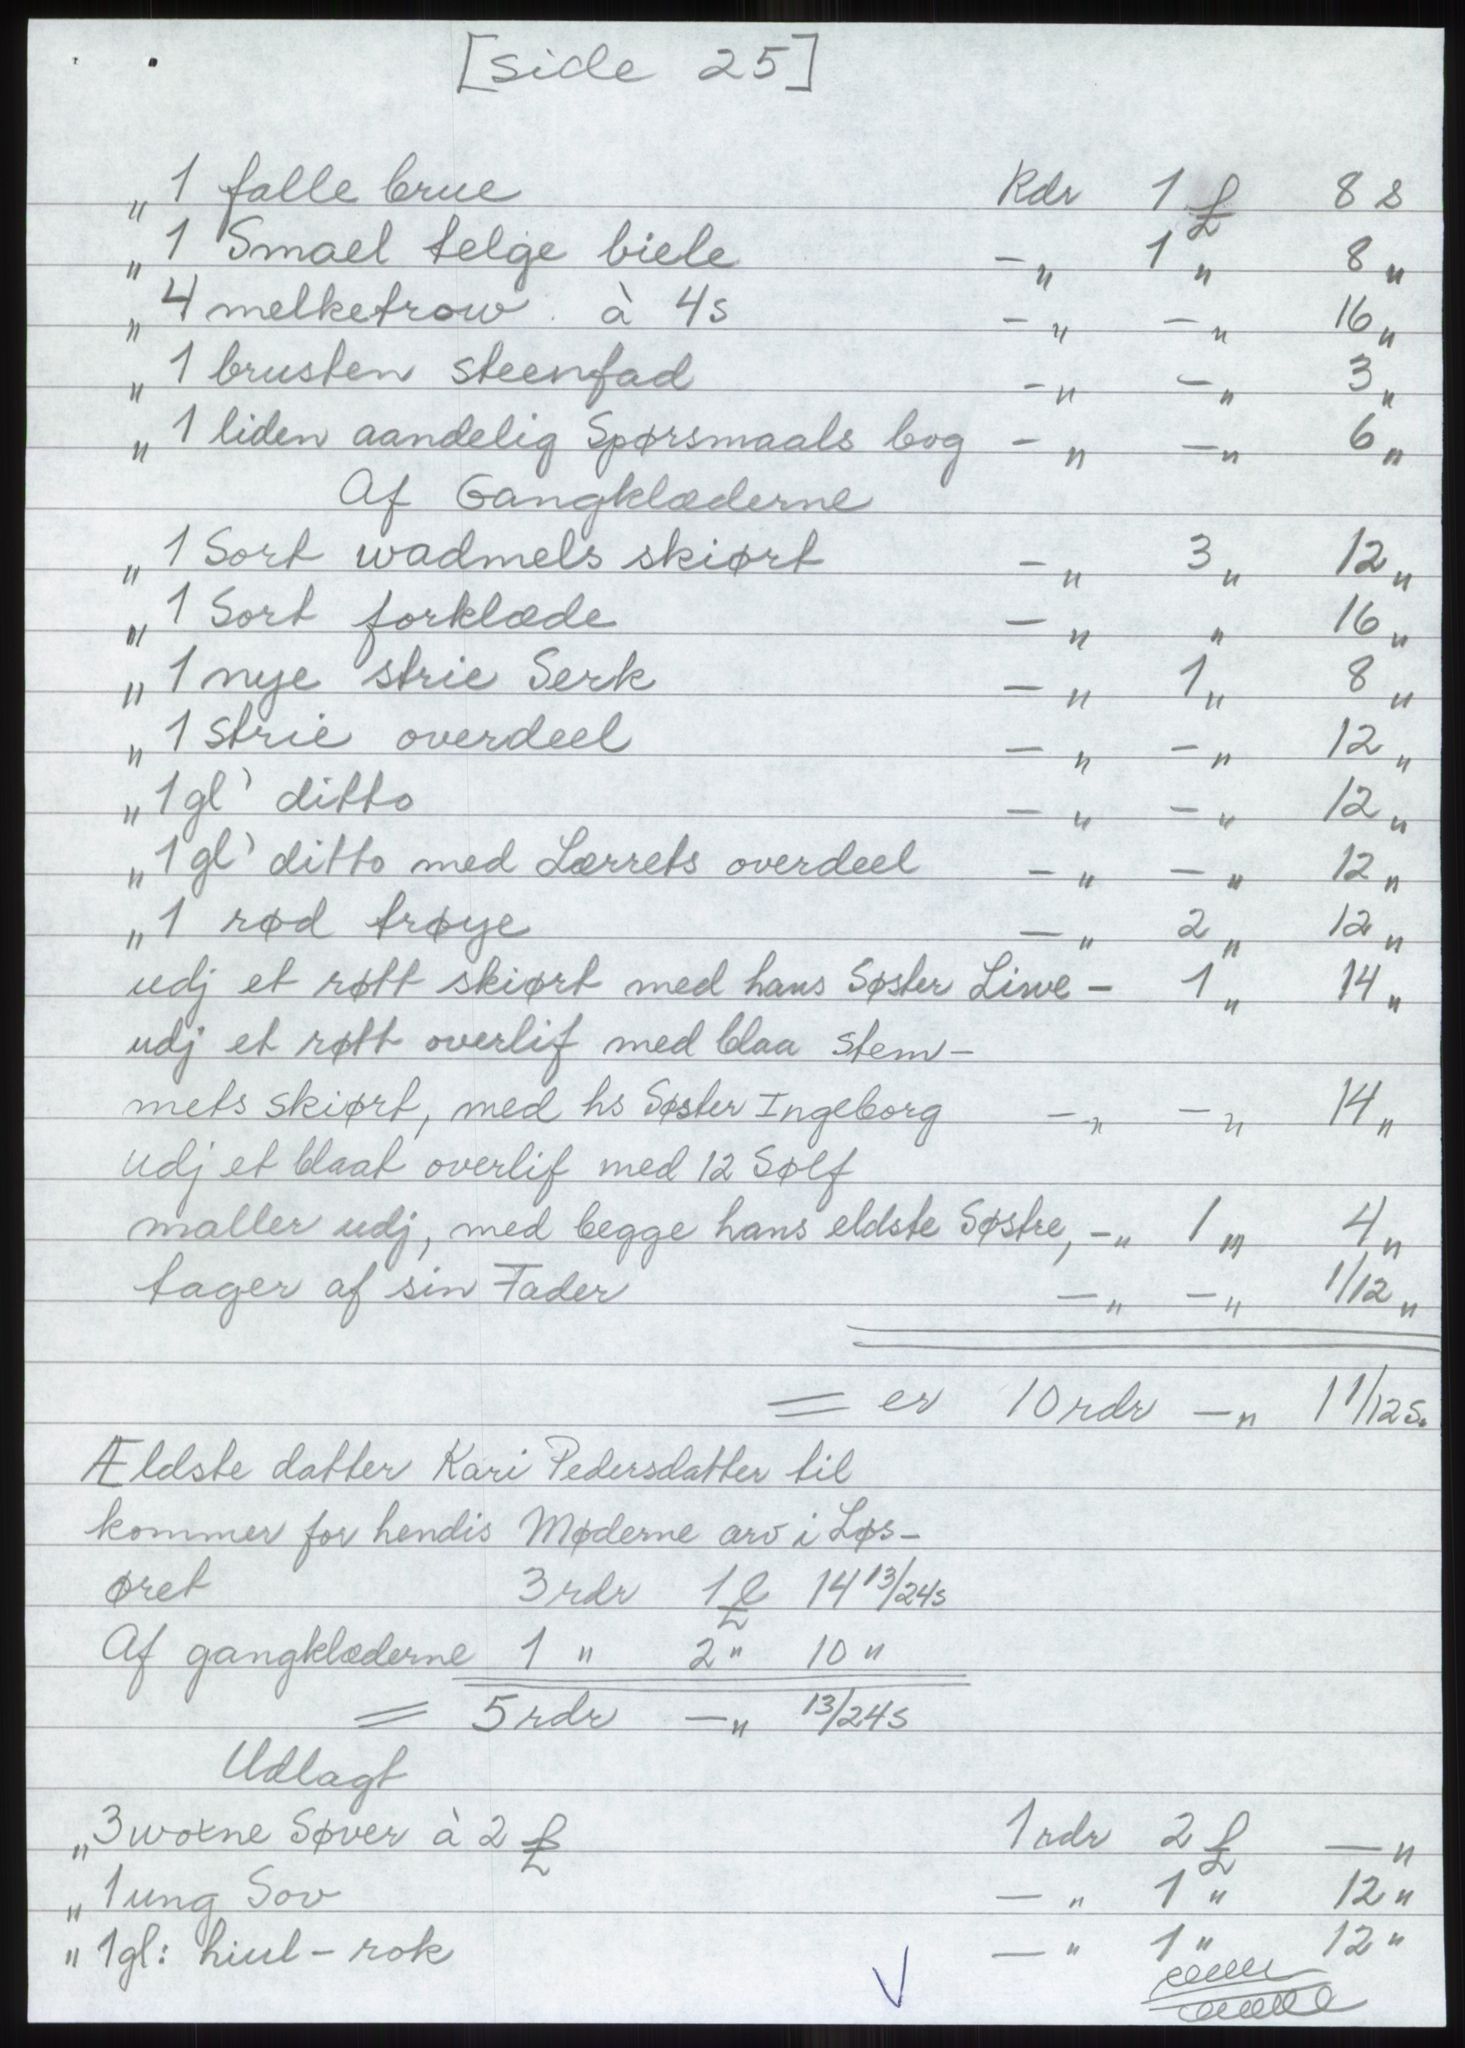 [side 25]
„ 1 falle brue Rdr 1 £ 8 s
„ 1 Smael telge biele -„ 1 „ 8 „
„ 4 melketrow. à 4s -„ -„ 16 „
„ 1 brusten steenfad -„ -„ 3 „
„ 1 liden aandelig Spørsmaals bog -„ -„ 6 „
Af Gangklæderne
„ 1 Sort wadmels skiørt -„ 3 „ 12 „
„ 1 Sort forklæde -„ „ 16 „
„ 1 nye strie Serk -„ 1 „ 8 „
„ 1 strie overdeel -„ -„ 12 „
„ 1 gl' ditto -„ -„ 12 „
„ 1 gl' ditto med Lærrets overdeel -„ -„ 12 „
„ 1 rød trøye -„ 2 „ 12 „
udj et røtt skiørt med hans Søster Liwe - 1 „ 14 „
udj et røtt overlif med blaa stem-
mets skiørt, med hs Søster Ingeborg -„ -„ 14 „
udj et blaat overlif med 12 Sølf
maller udj, med begge hans eldste Søstre, -„ 1 „ 4 „
tager af sin Fader -„ -„ 1/12 „
= er 10 rdr -„ 1 1/12 s.
Ældste datter Kari Pedersdatter til
kommer for hendis Møderne arv i Løs-
øret 3 rdr 1 £ 14 13/24 s
Af gangklæderne 1 „ 2 „ 10 „
= 5 rdr -„ 13/24 s
Udlagt
„ 3 woxne Søver à 2 £ 1 rdr 2 £ -„
„ 1 ung Sov -„ 1 „ 12 „
„ 1 gl: hiul-rok -„ 1 „ 12 „